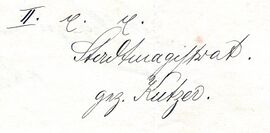 II. z. z.
Stadtmagistrat.
gez. Kutzer.